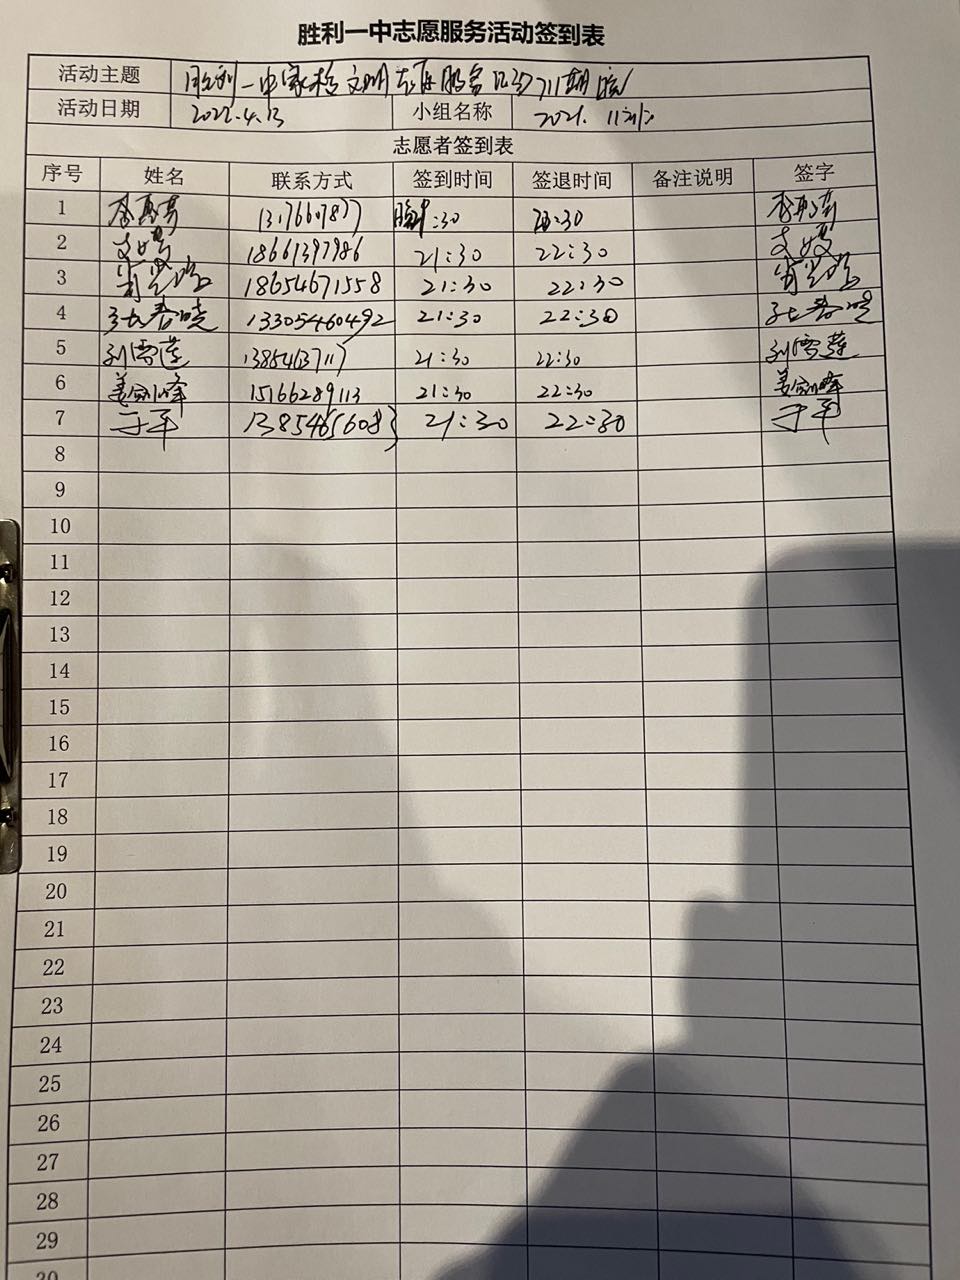 胜利一中志愿服务活动签到表
活动主题 胜利一中家校文明志愿服务
活动日期 2022.4.13 小组名称 2021.11
志愿者签到表
序号 姓名 联系方式 签到时间 签退时间 备注说明 签字
1 13176607877 :30 22:30
2 18661397986 21:30 22:30
3 18654671558 21:30 22:30
4 张春晓 13305460492 21:30 22:30 张春晓
5 刘雪莲 13854637117 21:30 22:30 刘雪莲
6 姜剑峰 15166289113 21:30 22:30 姜剑峰
7 于平 13854656083 21:30 22:30 于平
8
9
10
11
12
13
14
15
16
17
18
19
20
21
22
23
24
25
26
27
28
29
30